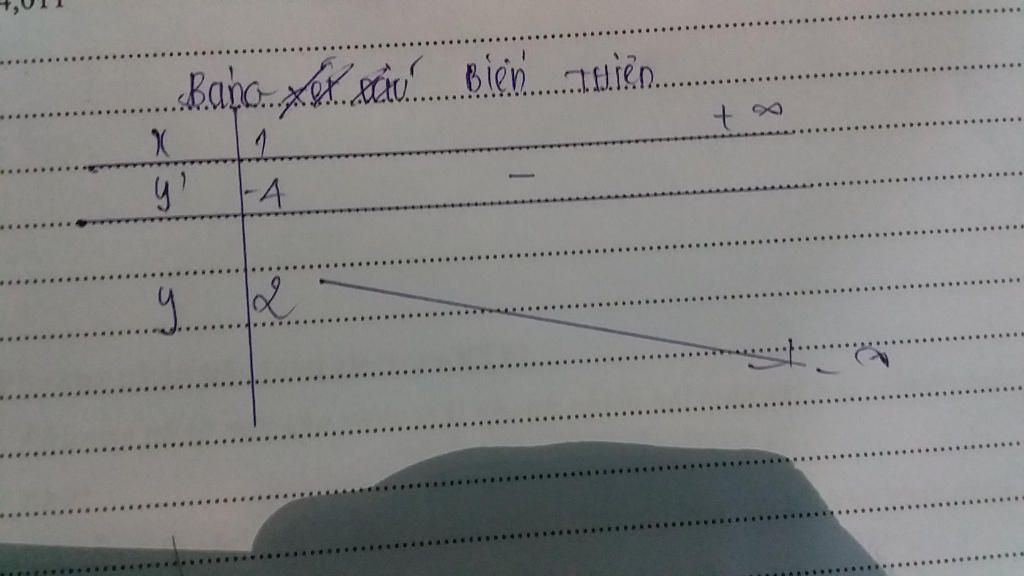 4,011
Bảng xét dấu Biến Thiên
x 1 +∞
y' -4 −
y 2 -∞